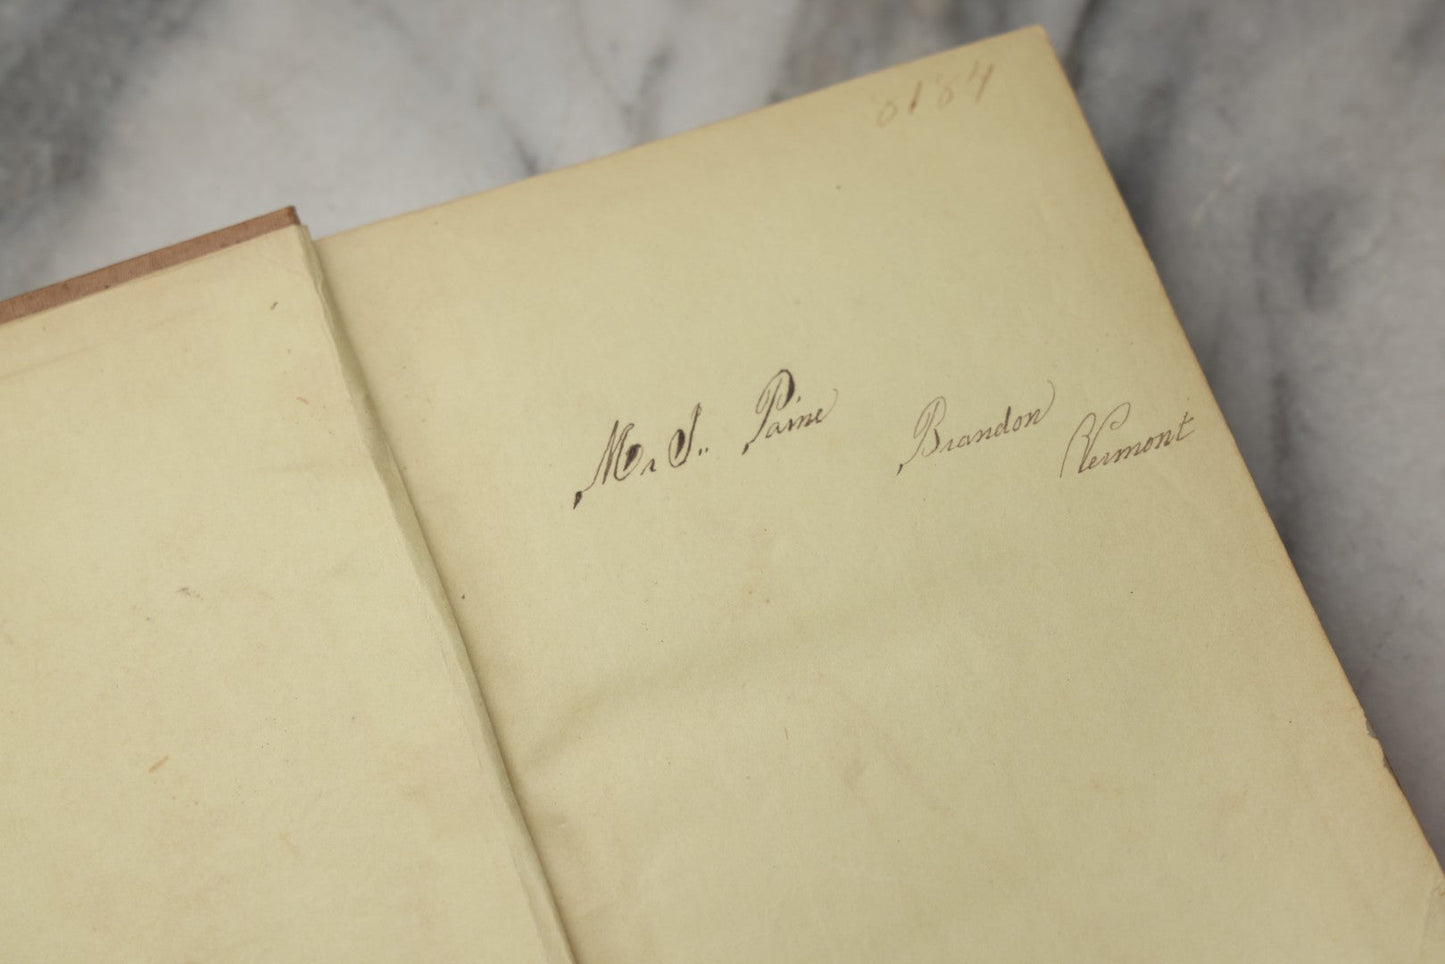 8184
Mr S.. Paine Brandon Vermont